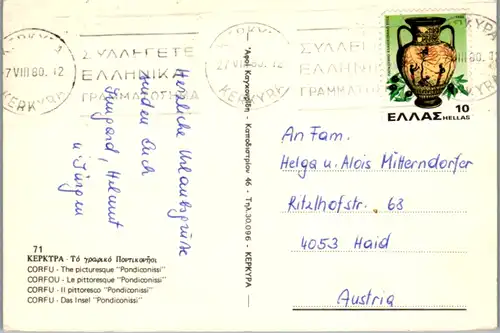 ΚΕΡΚΥΡΑ
27 VIII 80. 12
ΣΥΛΛΕΓΕΤΕ
ΕΛΛΗΝΙΚΑ
ΓΡΑΜΜΑΤΟΣΗΜΑ
ΚΕΡΚΥΡΑ
27 VIII 80. 12
ΣΥΛΛΕΓΕΤΕ
ΕΛΛΗΝΙΚΑ
ΓΡΑΜΜΑΤΟΣΗΜΑ
ΕΛΛΑΣ 10
HELLAS
Herzliche Urlaubsgrüße
senden Euch
Irmgard, Helmut
u. Jürgen
71
ΚΕΡΚΥΡΑ - Τό γραφικό Ποντικονήσι
CORFU - The picturesque "Pondiconissi"
CORFOU - Le pittoresque "Pondiconissi"
CORFU - Il pittoresco "Pondiconissi"
CORFU - Das Insel "Pondiconissi"
Καποδιστρίου 46 - Τηλ. 30.096 - ΚΕΡΚΥΡΑ
An Fam.
Helga u. Alois Mitterndorfer
Ritzlhofstr. 63
4053 Haid
Austria